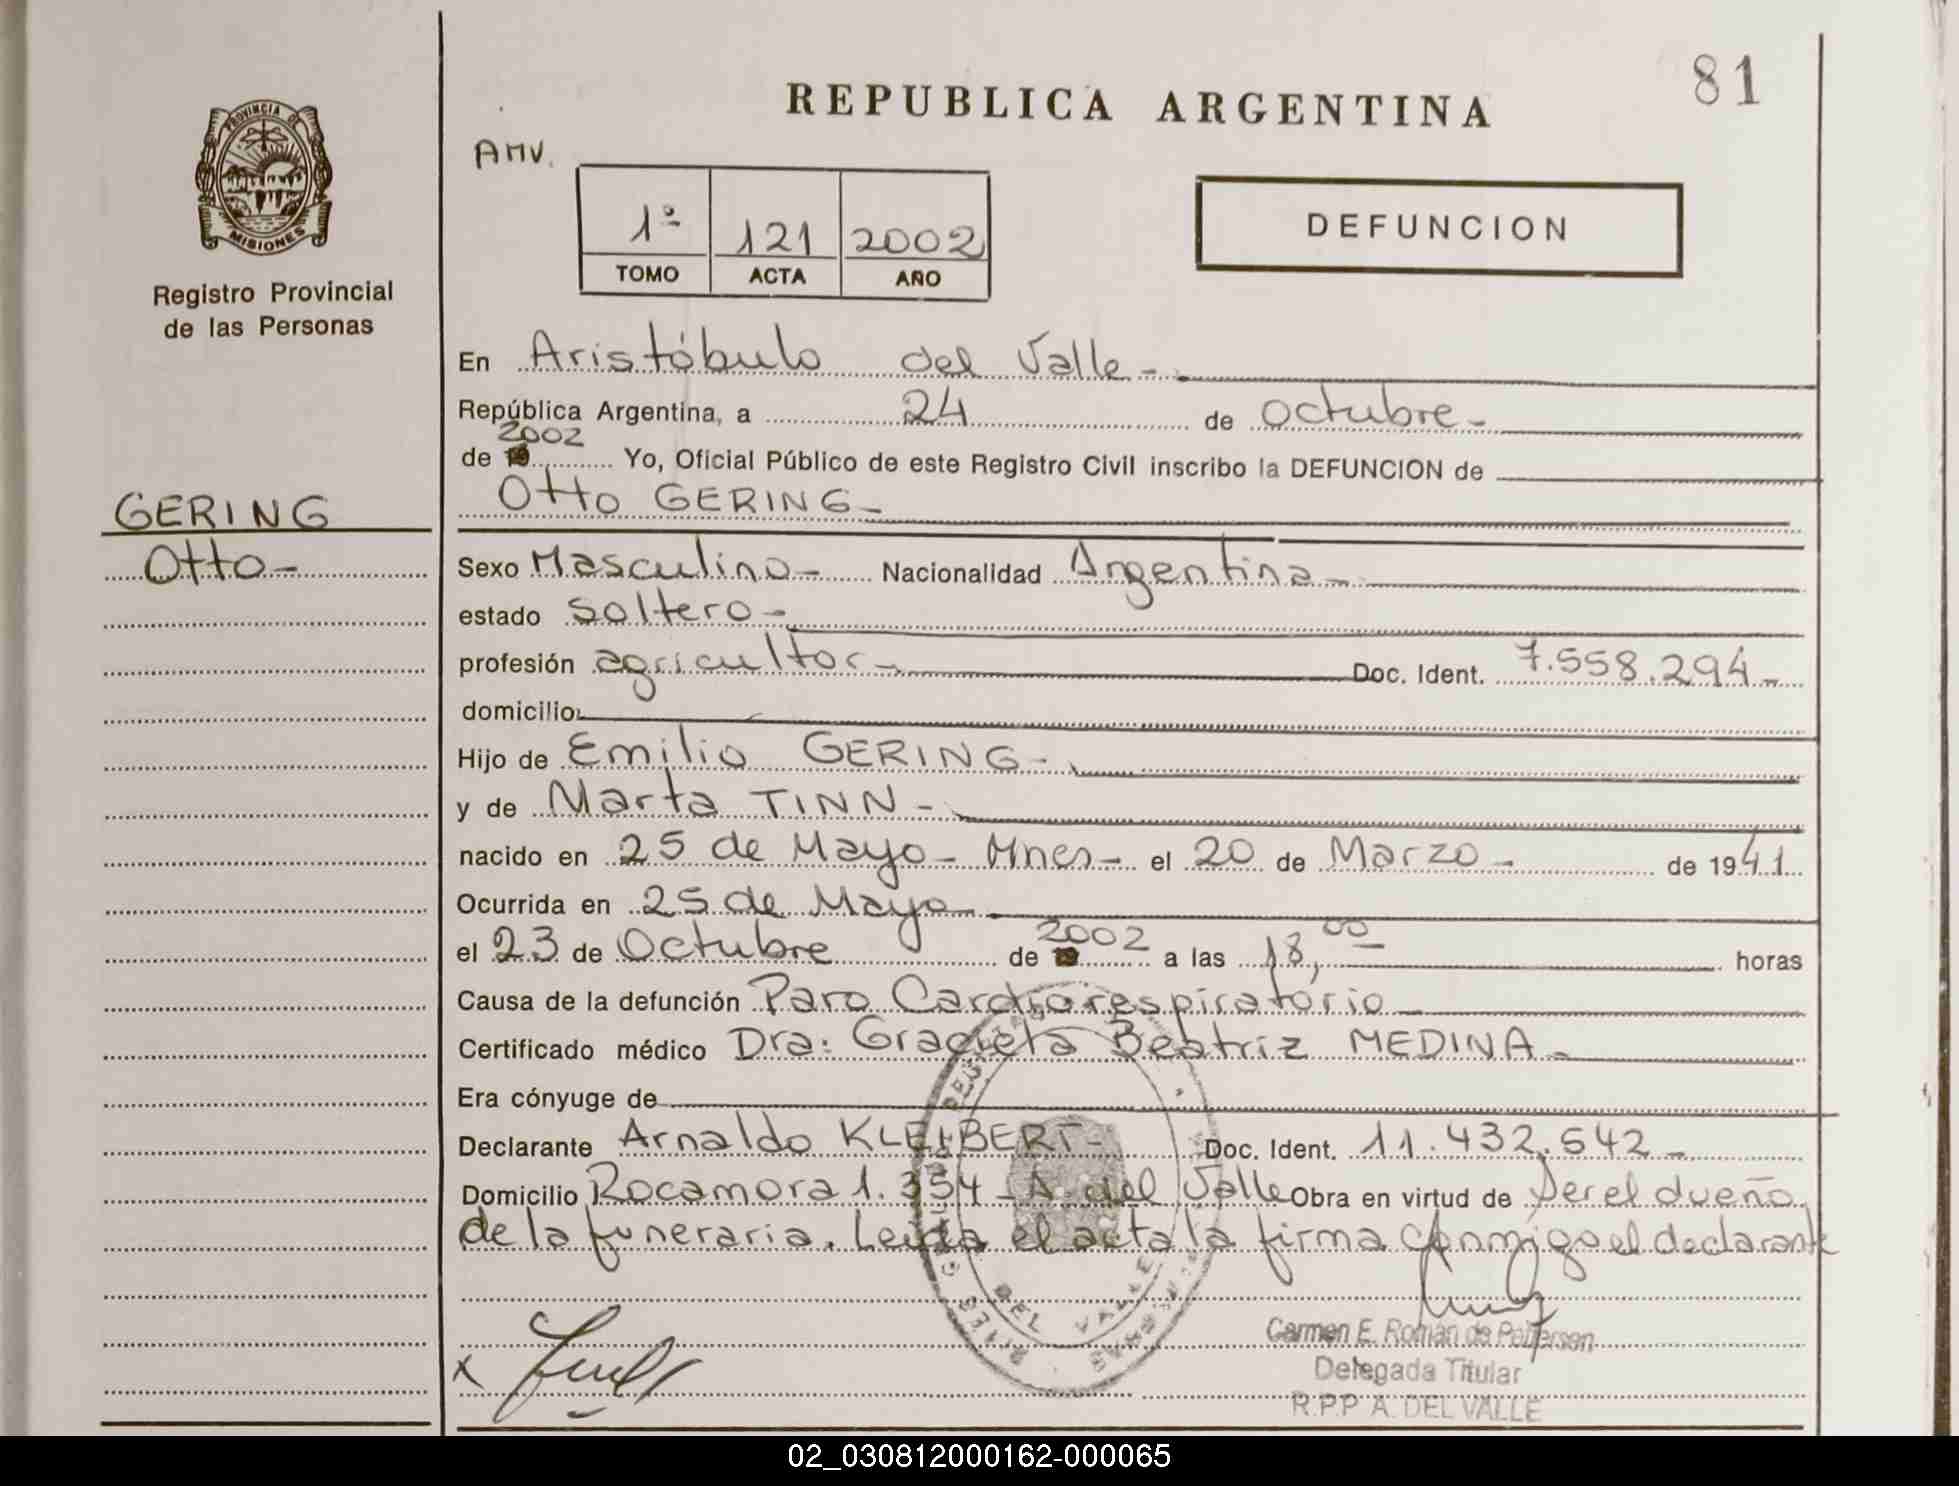 81
REPUBLICA ARGENTINA
AMV.
PROVINCIA DE
MISIONES
Registro Provincial
de las Personas
1º 121 2002
TOMO ACTA AÑO
DEFUNCION
En Aristóbulo del Valle-
República Argentina, a 24 de octubre-
2002
de 19 Yo, Oficial Público de este Registro Civil inscribo la DEFUNCION de
Otto GERING-
GERING
Otto-
Sexo Masculino- Nacionalidad Argentina-
estado soltero-
profesión agricultor- Doc. Ident. 7.558.294-
domicilio
Hijo de Emilio GERING-
y de Marta TINN-
nacido en 25 de Mayo- Mnes- el 20 de Marzo- de 1941
Ocurrida en 25 de Mayo
el 23 de Octubre de 19 2002 a las 18,00 horas
Causa de la defunción Paro Cardiorespiratório
Certificado médico Dra: Graciela Beatriz MEDINA-
Era cónyuge de
Declarante Arnaldo KLEIBERT- Doc. Ident. 11.432.542-
Domicilio Rocamora 1.354- A. del Valle Obra en virtud de ser el dueño
de la funeraria. Leída el acta la firma conmigo el declarante
DEL VALLE
Carmen E. Román de Pettersen
x
Delegada Titular
R.P.P A. DEL VALLE
02_030812000162-000065